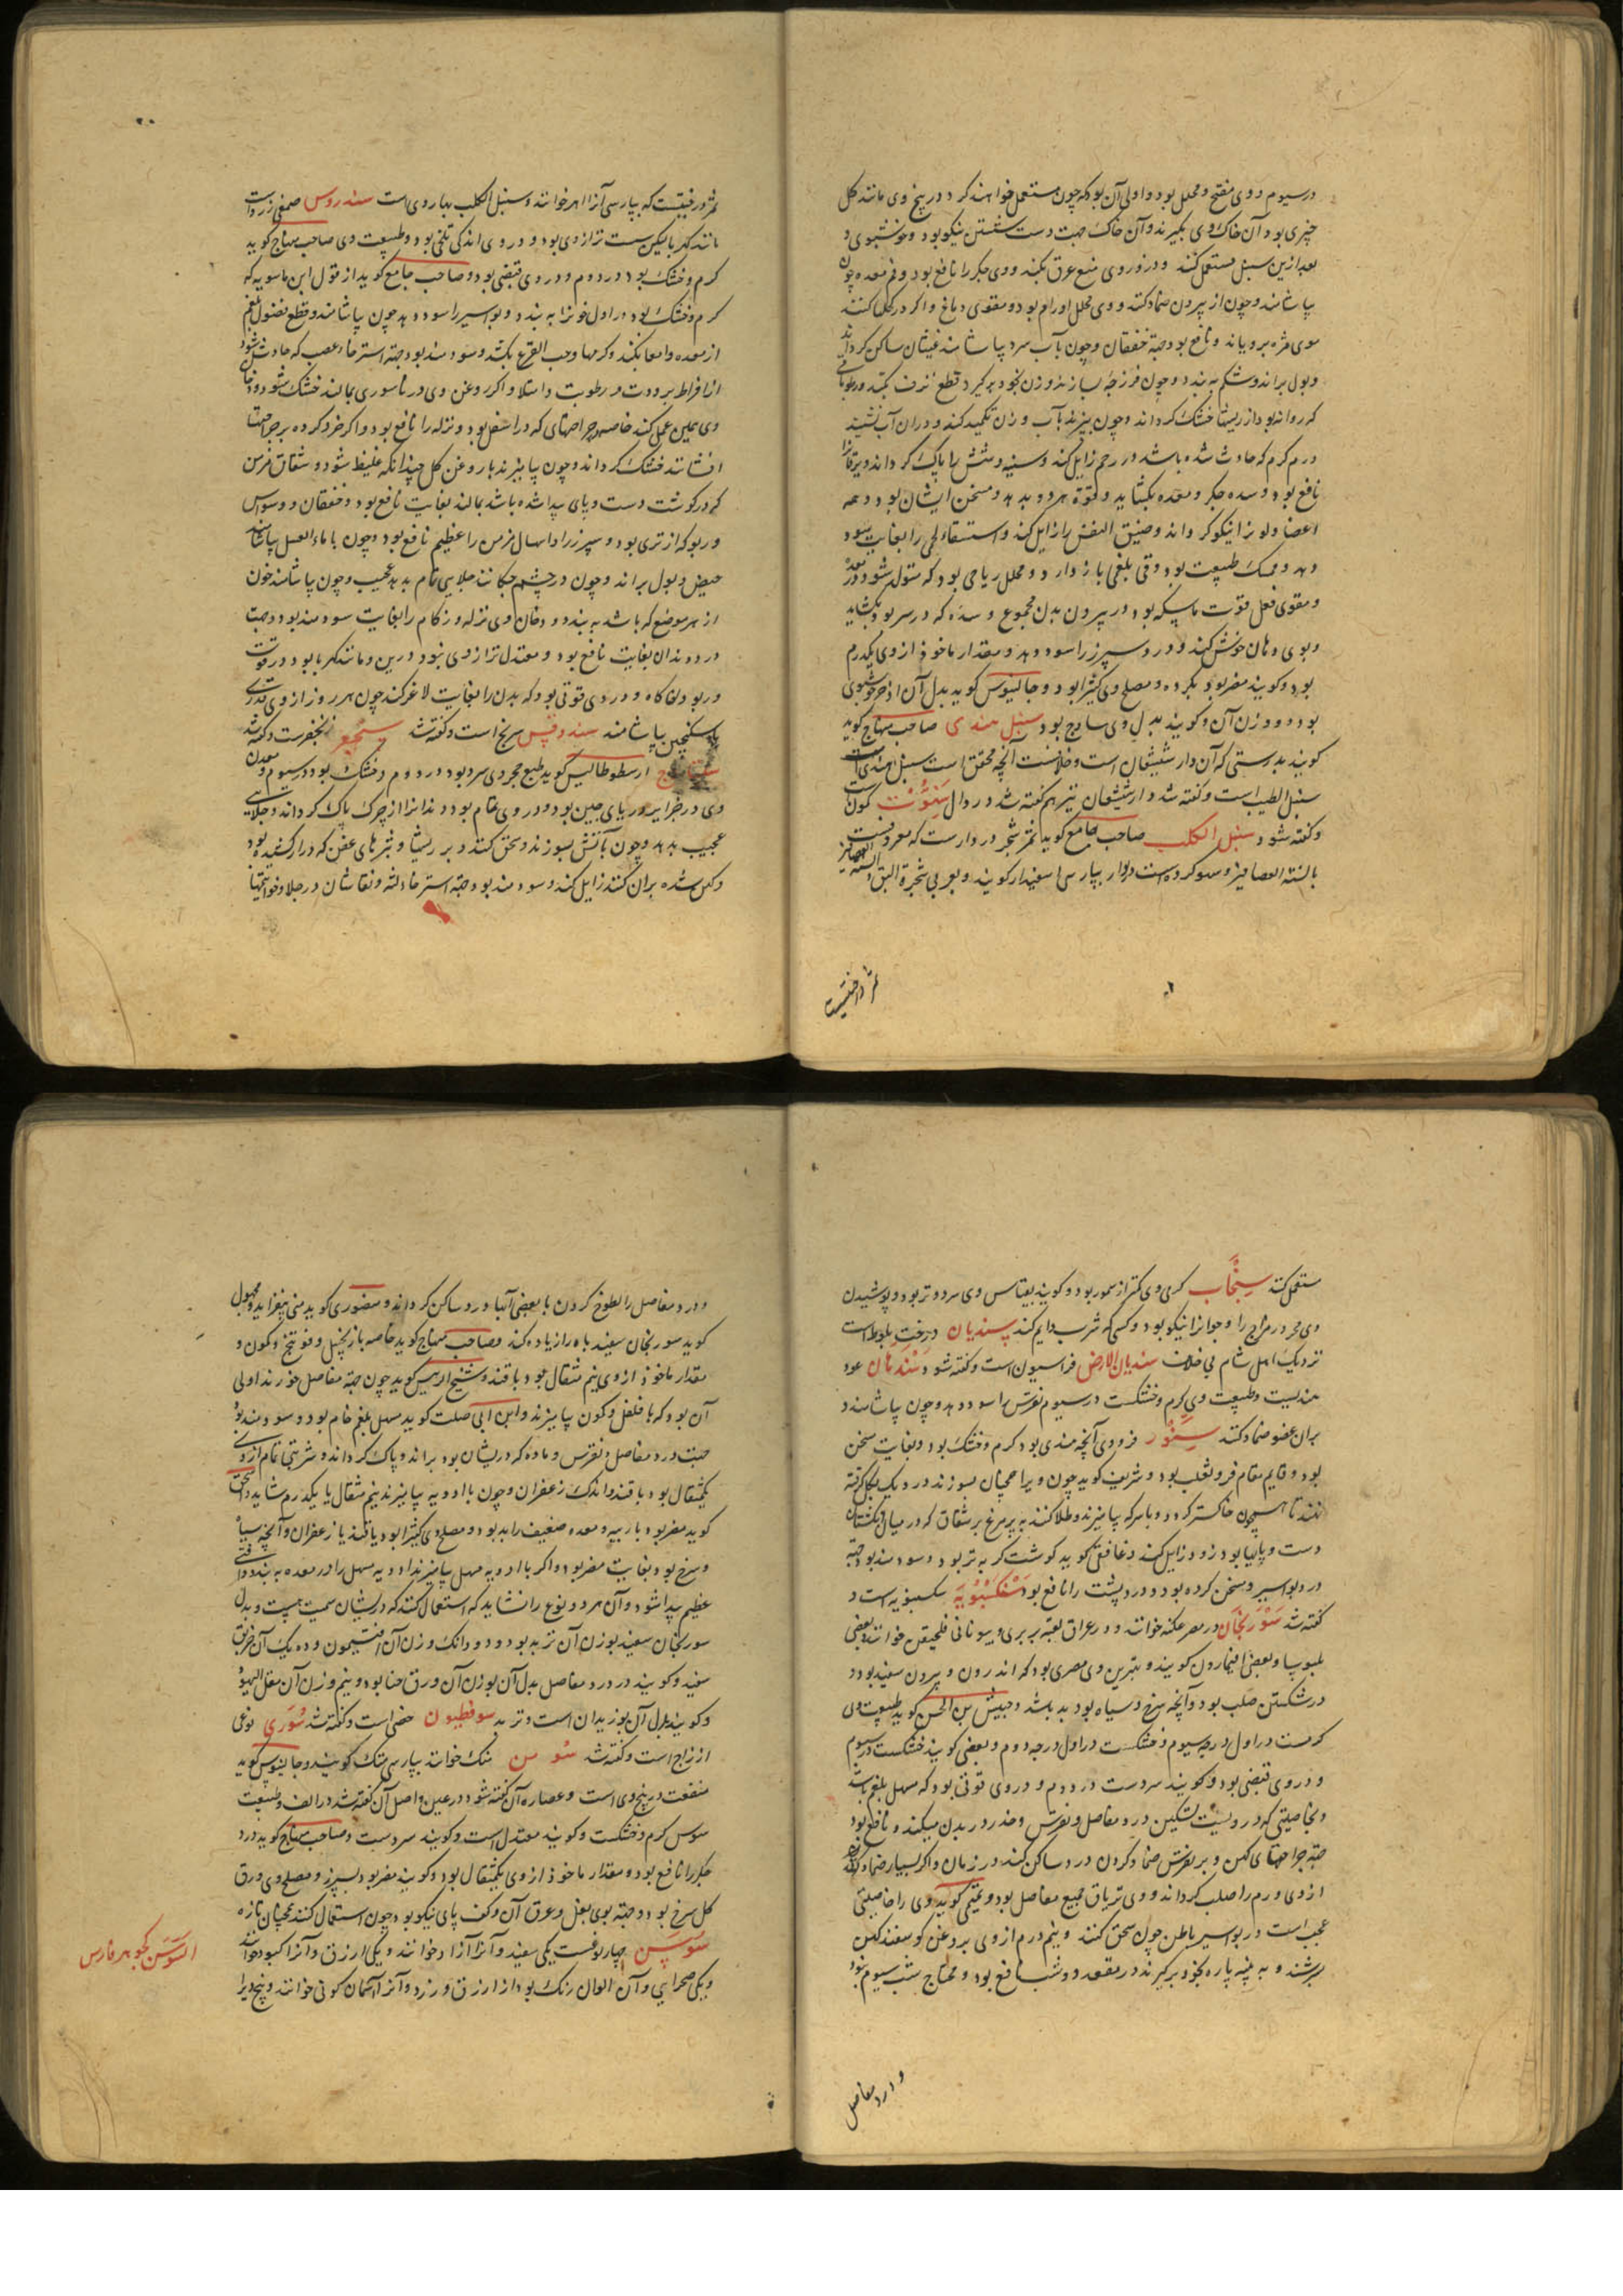 در سیوم و وی مفتح و محلل بود و اولی آن بود که چون مستعمل خواهند کرد در بیخ وی مانند کل
چیزی بود آن خاک وی بگیرند و آن خاک جهت دست شستن نیکو بود و خوشبوی و
بعد ازین سنبل مستعمل کنند و در زور وی منع عرق بکند و وی جکر را نافع بود و فم معده چون
بیاشامند و چون از بیرون ضماد کنند و وی محلل اورام بود و مقوی دماغ و اکر در کحل کنند
موی مژه برویاند و نافع بود جهة خفقان و چون بآب سرد بیاشامند غثیان ساکن کرداند
و بول براند و شکم به بندد و چون فرزجه سازند و زن بخود برکیرد قطع نزف بکند و رطوباتی
که روانه بود از ریشها خشک کرداند و چون بپزند بآب و زن تکمید کند و در آن آب نشیند
ورم کرم که حادث شده باشد در رحم زایل کند و سینه و شش را پاک کرداند و یرقانرا
نافع بود و سده جکر و معده بکشاید و قوة هر دو بدهد و مسخن ایشان بود و همه
اعضا و لونرا نیکو کرداند و ضیق النفس را زایل کند و استسقاء لحمی را بغایت سود
دهد و ممسک طبیعت بود و قی بلغمی باز دارد و محلل ریاحی بود که متولد شود در معده
و مقوی فعل قوت ماسکه بود در بیرون بدن مجموع و سده که در سر بود بکشاید
و بوی دهان خوش کند و درد سپرز را سود دهد و مقدار ماخوذ از وی یکدرم
بود و کویند مضر بود بکرده و مصلح وی کثیرا بود و جالینوس کوید بدل آن اذخر خوشبوی
بود دو وزن آن و کویند بدل وی ساذج بود سنبل هندی صاحب منهاج کوید
کویند بدرستی که آن دار شیشعان است و خلافست آنچه محقق است سنبل هندی
سنبل الطیب است و کفته شد و دار شیشعان نیز هم کفته شد در دال سَنُّوْت کمون است
و کفته شود سنبل الکلب صاحب جامع کوید ثمر شجر دردار است که معروفست
بالسنة العصافیر و سهو کرده است دردار بپارسی اسفیدار کویند و بعربی شجرة البق و السنة العصافیر
ثمر درختیست
ثمر درختیست که بپارسی آنرا اهر خوانند و سنبل الکلب بهار وی است سندروس صمغی زرد است
مانند کهربا لیکن سست تر از وی بود و در وی اندکی تلخی بود و طبیعت وی صاحب منهاج کوید
کرم و خشک بود در دوم و در وی قبضی بود و صاحب جامع کوید از قول ابن ماسویه که
کرم و خشک بود در اول خونرا به بندد و بواسیر را سود دهد چون بیاشامند و قطع فضول بلغم
از معده و امعا بکند و کرمها و حب القرع بکشد و سودمند بود جهة استرخاء عصب که حادث شود
از افراط برودت و رطوبت و امتلا و اکر روغن وی در ناسوری بمالند خشک شود و دخان
وی همین عمل کند خاصه جراحتهای که در اسفل بود و نزله را نافع بود و اکر خرد کرده بر جراحتها
افشانند خشک کرداند و چون بیامیزند با روغن کل چندانکه غلیظ شود و شقاق مزمن
که در کوشت دست و پای پیدا شده باشد بمالند بغایت نافع بود و خفقان و وسواس
و ربو که از تری بود و سپرز را و اسهال مزمن را عظیم نافع بود و چون با ماء العسل بیاشامند
حیض و بول براند و چون در چشم چکانند جلای تمام بدهد عجیب و چون بیاشامند خون
از هر موضع که باشد به بندد و دخان وی نزله و زکام را بغایت سودمند بود و جهت
درد دندان بغایت نافع بود و معتدل تر از وی نبود درین و مانند کهربا بود در قوت
و ربو و لقا کاه و در وی قوتی بود که بدن را بغایت لاغر کند چون هر روز از وی قدری
با سکنجبین بیاشامند سندوقس سرنج است و کفته شد سنجفر زنجفرست و کفته شد
سنباذج ارسطوطالیس کوید طبع حجر وی سرد بود در دوم و خشک بود در سیوم و معدن
وی در جزایر دریای چین بود و در وی تمام بود دندانرا از چرک پاک کرداند و جلایی
عجیب بدهد و چون بآتش بسوزند و سحق کنند و بر ریشها و بثرهای عفن که دراز کشیده بود
و کهن شده بران کنند زایل کند و سودمند بود جهة استرخاء لثه و نقاشان در جلا و خواتیمها
مستعمل کنند سِنْجَاب کرمی وی کمتر از سمور بود و کویند بقیاس وی سرد و تر بود و پوشیدن
وی محرور مزاج را و جوانرا نیکو بود و کسی که شرب دایم کند سِندِیان درخت بلوط است
نزدیک اهل شام بی خلاف سندیان الارض فراسیون است و کفته شود سَنْدهان عود
هندیست و طبیعت وی کرم و خشکست در سیوم نقرس را سود دهد چون بیاشامند و
بران عضو ضماد کنند سِنَّوْر فرو وی آنچه هندی بود کرم و خشک بود و بغایت سخن
بود و قایم مقام فرو ثعلب بود و شریف کوید چون ویرا همچنان بسوزند در دیک بکل کرفته
نهند تا همچون خاکستر کردد و با سرکه بیامیزند و طلا کنند به پر مرغ بر شقاق که در میان انکشتان
دست و پایها بود زود زایل کند و غافقی کوید کوشت کربه تر بود و سودمند بود جهة
درد بواسیر و سخن کرده بود و درد پشت را نافع بود سَنْکَسْبُوْیَه سکسبویه است و
کفته شد سَوْرِنْجَان در مصر عکنه خوانند و در عراق لعبه بربری و بیونانی فلحیقن خوانند و بعضی
بلبوسیا و بعضی افیمارون کویند و بهترین وی مصری بود که اندرون و بیرون سفید بود و
در شکستن صلب بود و آنچه سرخ و سیاه بود بد باشد و حبیش بن الحسن کوید طبیعت وی
کرمست در اول درجه سیوم و خشکست در اول درجه دوم و بعضی کویند خشکست در سیوم
و در وی قبضی بود و کویند سردست در دوم و در وی قوتی بود که مسهل بلغم باشد
و بخاصیتی که در ویست تسکین درد مفاصل و نقرس و خدر در بدن میکند و نافع بود
جهة جراحتهای کهن و بر نقرس ضماد کردن درد ساکن کند در زمان و اکر بسیار ضماد کنند
از وی ورم را صلب کرداند و وی تریاق جمیع مفاصل بود و تمیمی کوید وی را خاصیتی
عجب است در بواسیر باطن چون سحق کنند و نیم درم از وی بروغن کوسفند کهن
بسرشند و به پنبه پاره بخود برکیرند در مقعد دو شب نافع بود و محتاج شب سیوم نبود
و درد مفاصل
و درد مفاصل را لطوخ کردن با بعضی آبها درد ساکن کرداند و منصوری کوید منی بیفزاید و مجهول
کوید سورنجان سفید باه را زیاده کند و صاحب منهاج کوید خاصه با زنجبیل و فوتنج و کمون و
مقدار ماخوذ از وی نیم مثقال بود با قند و شیخ الرییس کوید چون جهة مفاصل خورند اولی
آن بود که با فلفل و کمون بیامیزند و ابن ابی صلت کوید مسهل بلغم خام بود و سودمند بود
جهت درد مفاصل و نقرس و ماده که در یشان بود براند و پاک کرداند و شربتی تمام از وی
یکمثقال بود با قند و اندک زعفران و چون با ادویه بیامیزند نیم مثقال یا یکدرم شاید و اسحق
کوید مضر بود بآریه و معده ضعیف را بد بود و مصلح وی کثیرا بود یا قند یا زعفران و آنچه سیاه
و سرخ بود بغایت مضر بود و اکر با ادویه مسهل بیامیزند ادویه مسهل را در معده به بندد و آفتی
عظیم پیدا شود و آن هر دو نوع را نشاید که استعمال کنند که در یشان سمیت هست و بدل
سورنجان سفید بوزن آن تربد بود و دو دانک وزن آن افتیمون و ده یک آن خربق
سفید و کویند در درد مفاصل بدل آن بوزن آن ورق حنا بود و نیم وزن آن مقل الیهود
و کویند بدل آن بوزیدان است و تربد سوفطیون خصی است و کفته شد سُوْرِی نوعی
از زاج است و کفته شد سُوْس متک خوانند بپارسی متک کویند و جالینوس کوید
منفعت در بیخ وی است و عصاره آن کفته شود در عین و اصل آن کفته شد در الف و طبیعت
سوس کرم و خشکست و کویند معتدل است و کویند سردست و صاحب منهاج کوید درد
جکر را نافع بود و مقدار ماخوذ از وی یکمثقال بود و کویند مضر بود بسپرز و مصلح وی ورق
کل سرخ بود و جهة بوی بغل و عرق آن و کف پای نیکو بود چون استعمال کنند همچنان تازه
سُوْسَن چهار نوعست یکی سفید و آنرا آزاد خوانند و یکی ازرق و آنرا کبود خوانند
و یکی صحرایی و آن الوان رنک بود از ازرق و زرد و آنرا آسمان کونی خوانند و بیخ ویرا
السَوسَن کجوهر فارس